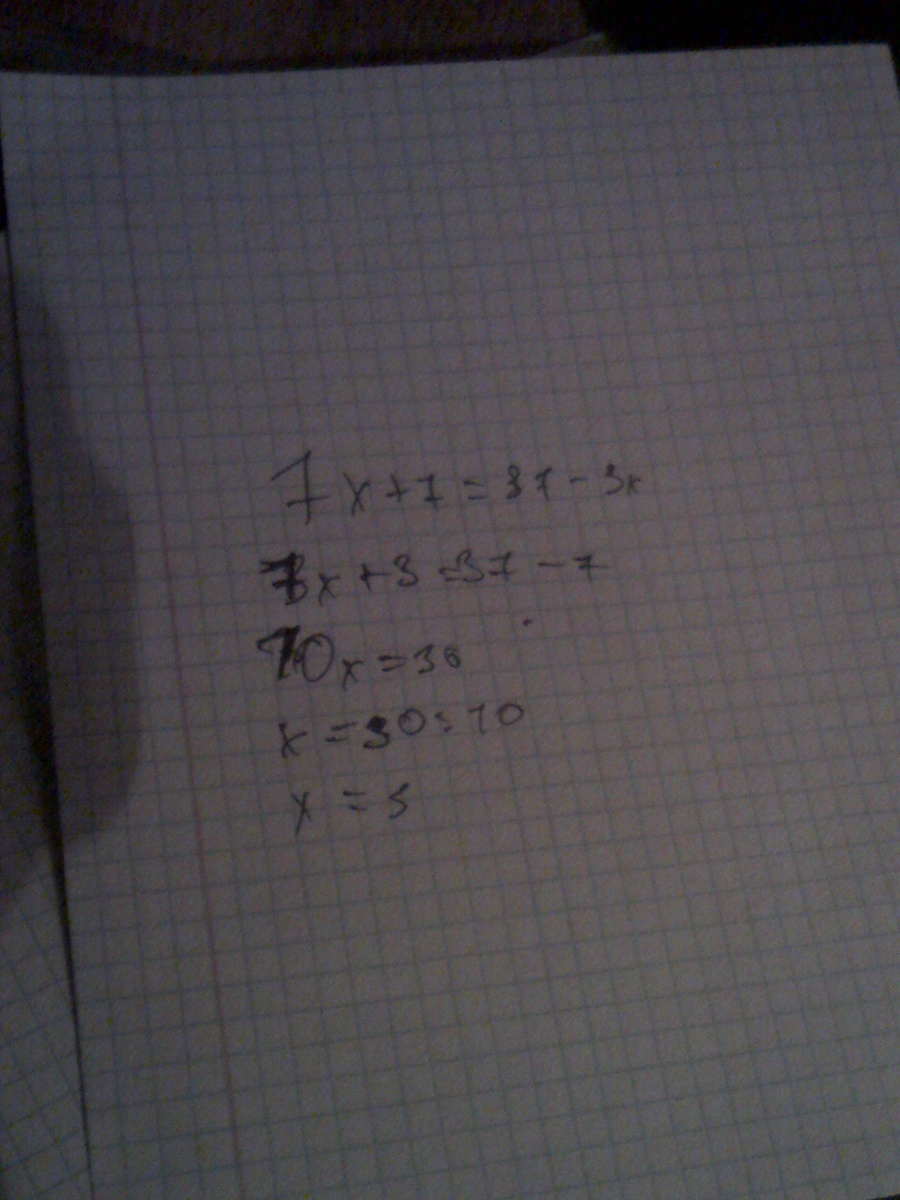 7x+7=37-3x
7x+3=37-7
10x=30
x=30:10
x=3